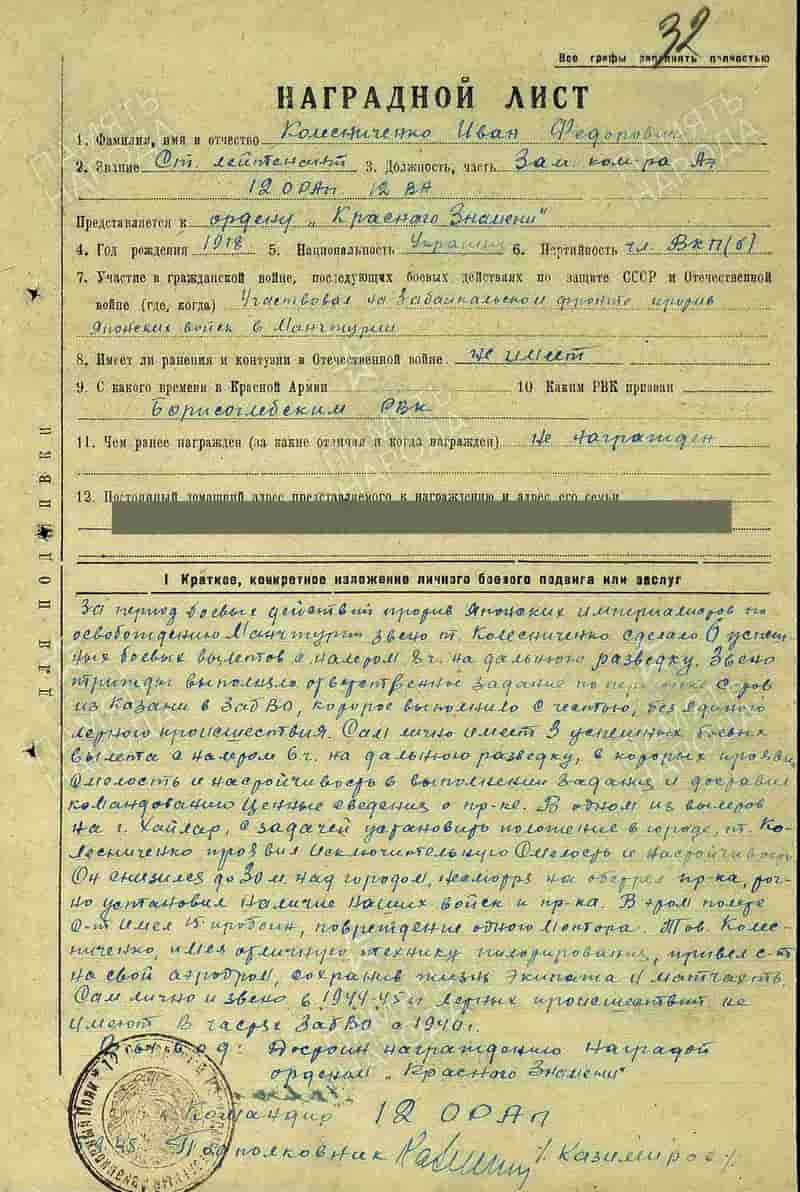 32
Все графы заполнять полностью
НАГРАДНОЙ ЛИСТ
1. Фамилия, имя и отчество Колесниченко Иван Федорович
2. Звание Ст. лейтенант 3. Должность, часть Зам. ком-ра АЭ
12 ОРАП 12 ВА
Представляется к ордену „Красного Знамени"
4. Год рождения 1918 5. Национальность Украинец 6. Партийность чл. ВКП(б)
7. Участие в гражданской войне, последующих боевых действиях по защите СССР и Отечественной
войне (где, когда) Участвовал на Забайкальском фронте против
Японских войск в Манчжурии
8. Имеет ли ранения и контузии в Отечественной войне не имеет
9. С какого времени в Красной Армии 10 Каким РВК призван
Борисоглебским РВК
11. Чем ранее награжден (за какие отличия и когда награжден) не награжден
12. Постоянный домашний адрес представляемого к награждению и адрес его семьи
ДЛЯ ПОДШИВКИ
I Краткое, конкретное изложение личного боевого подвига или заслуг
За период боевых действий против Японских империалистов по
освобождению Манчжурии звено т. Колесниченко сделало 6 успеш-
ных боевых вылетов с налетом 8 ч. на дальнюю разведку. Звено
трижды выполняло ответственные задание по перегонке с-тов
из Казани в ЗабВО, которое выполнило с честью, без единого
летного происшествия. Сам лично имеет 3 успешных боевых
вылета с налетом 6 ч. на дальнюю разведку, в которых проявил
смелость и настойчивость в выполнении задания и доставил
командованию ценные сведения о пр-ке. В одном из вылетов
на г. Хайлар, с задачей установить положение в городе, т. Ко-
лесниченко проявил исключительную смелость и настойчивость
Он снизился до 30 м. над городом, несмотря на обстрел пр-ка, точ-
но установил наличие наших войск и пр-ка. В этом полете
с-т имел 15 пробоин, повреждение одного мотора. Тов. Колес-
ниченко, имея отличную технику пилотирования, привел с-т
на свой аэродром, сохранив жизнь экипажа и матчасть.
Сам лично и звено в 1944-45 гг летных происшествий не
имеют. В частях ЗабВО с 1940 г.
Вывод: Достоин награждению наградой
орденом „Красного Знамени"
Командир 12 ОРАП
Подполковник /Казимиров/